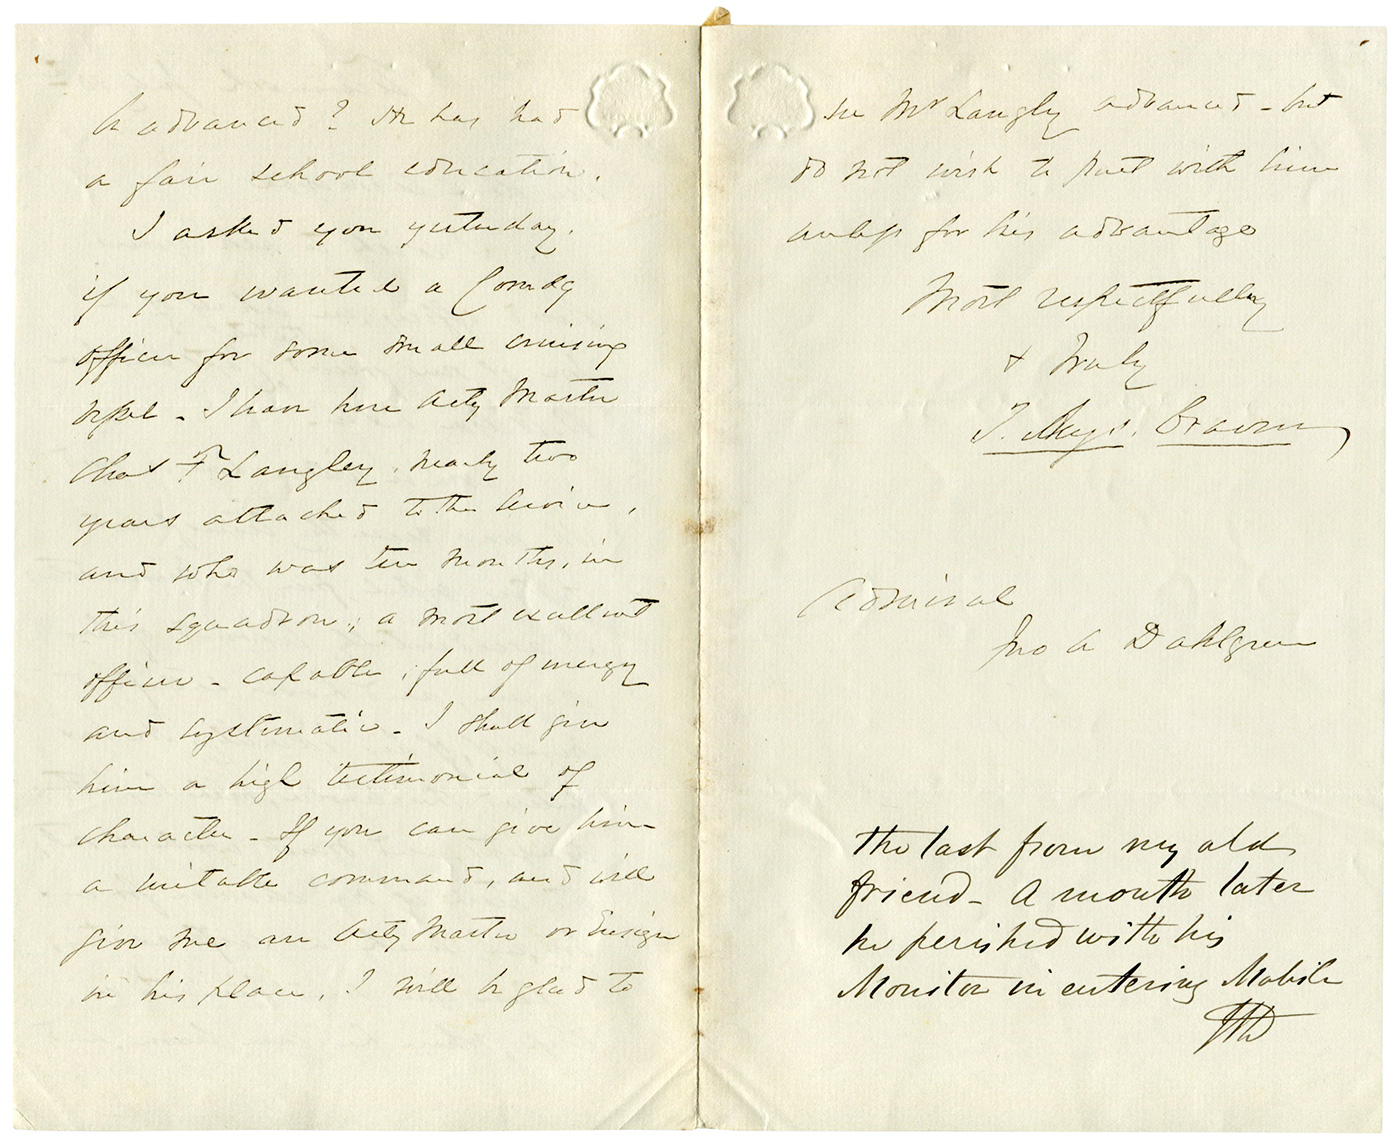 be advanced? He has had
a fair school education.
I asked you yesterday,
if you wanted a Comdg
officer for some small cruising
vessel - I have here Actg Master
Chas F Langley, nearly two
years attached to the service,
and who was ten months, in
this squadron; a most excellent
officer - capable, full of energy
and systematic - I shall give
him a high testimonial of
character - If you can give him
a suitable command, and will
give me an Actg Master or Ensign
in his place, I will be glad to
see Mr Langley advanced - but
do not wish to part with him
unless for his advantage
Most respectfully
& Truly
T. Augs. Craven
Admiral
Jno A Dahlgren
The last from my old
friend - A month later
he perished with his
Monitor in entering Mobile
JAD